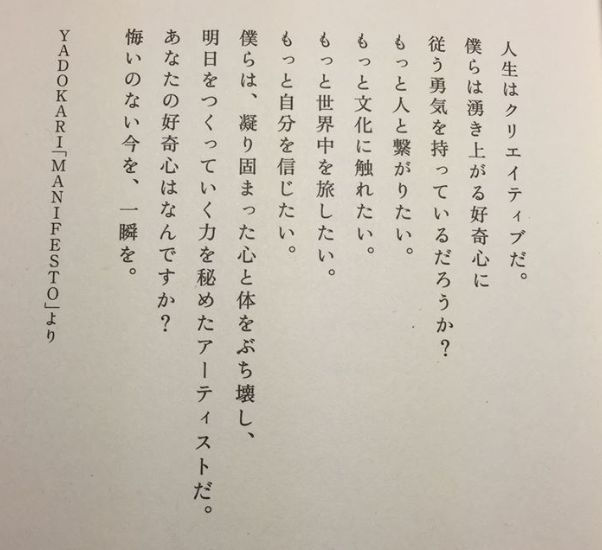 人生はクリエイティブだ。
僕らは湧き上がる好奇心に
従う勇気を持っているだろうか?
もっと人と繋がりたい。
もっと文化に触れたい。
もっと世界中を旅したい。
もっと自分を信じたい。
僕らは、凝り固まった心と体をぶち壊し、
明日をつくっていく力を秘めたアーティストだ。
あなたの好奇心はなんですか?
悔いのない今を、一瞬を。
YADOKARI「MANIFESTO」より